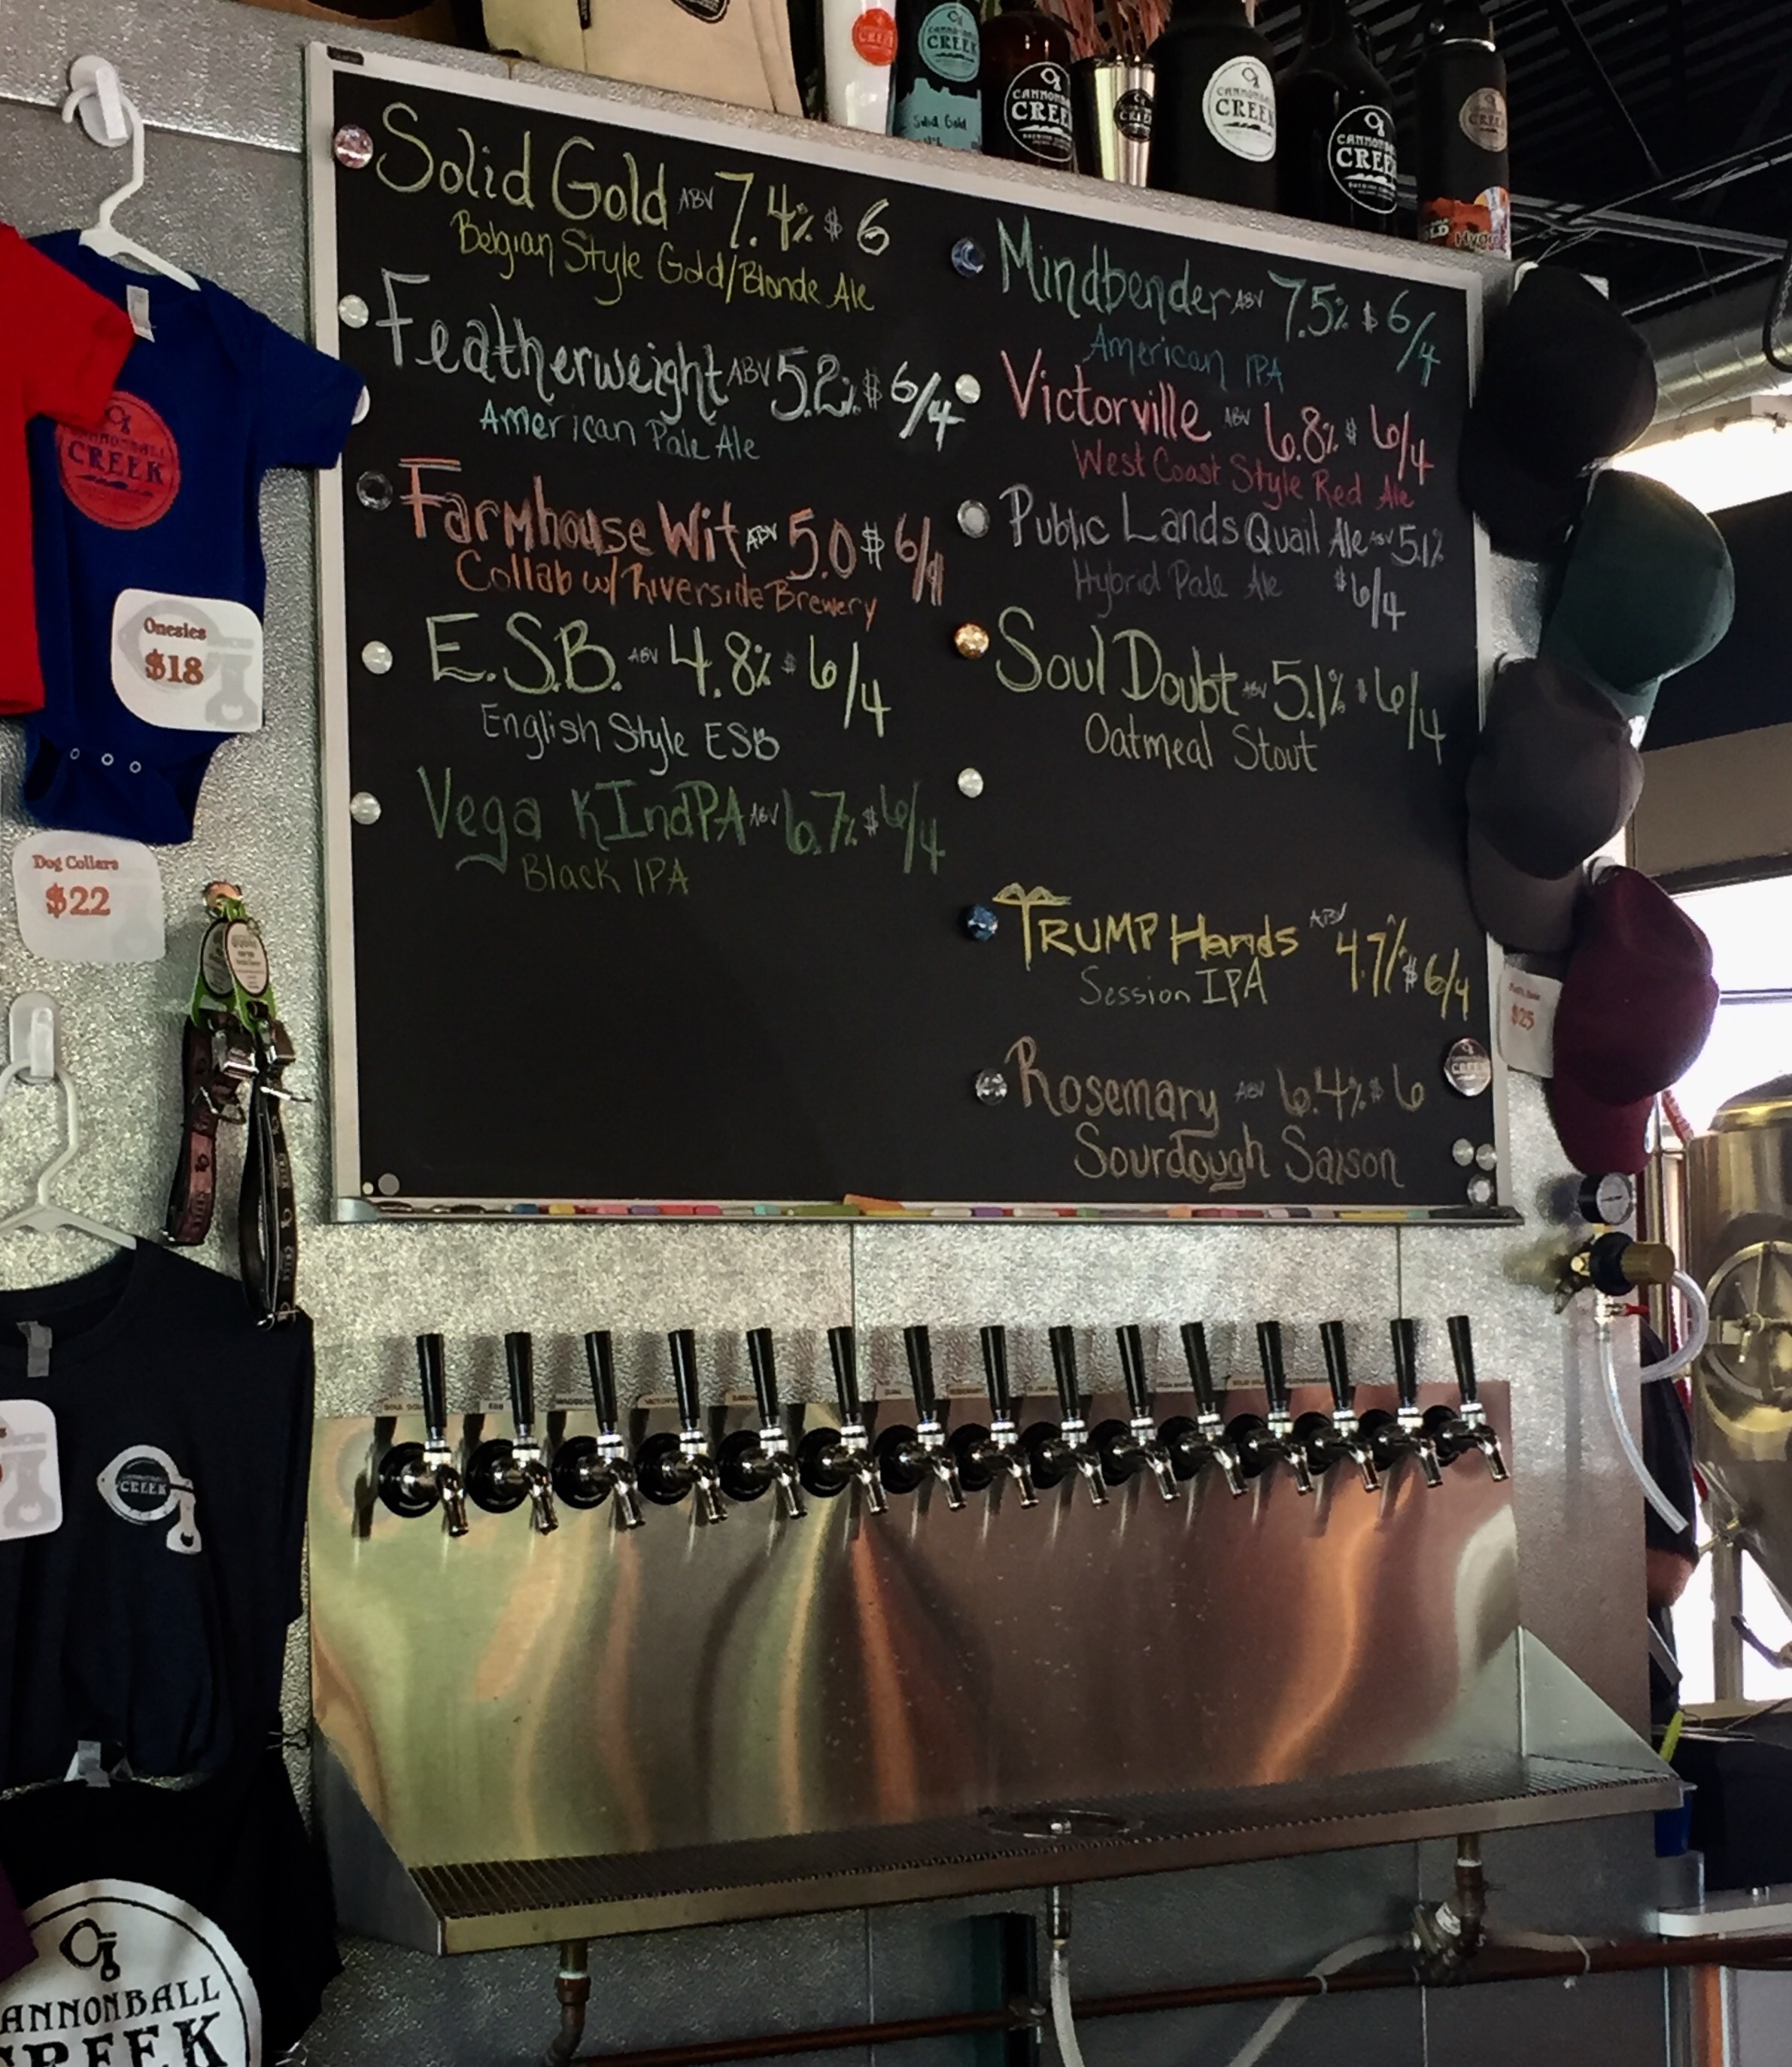 Solid Gold ABV 7.4% $ 6
Belgian Style Gold/Blonde Ale
Featherweight ABV 5.2% $ 6/4
American Pale Ale
Farmhouse Wit ABV 5.0 $ 6/4
Collab w/ Riverside Brewery
E.S.B. ABV 4.8% $ 6/4
English Style ESB
Vega KIndPA ABV 6.7% $ 6/4
Black IPA
Mindbender ABV 7.5% $ 6/4
American IPA
Victorville ABV 6.8% $ 6/4
West Coast Style Red Ale
Public Lands Quail Ale ABV 5.1%
Hybrid Pale Ale $6/4
Soul Doubt ABV 5.1% $ 6/4
Oatmeal Stout
TRUMP Hands ABV 4.7% $ 6/4
Session IPA
Rosemary ABV 6.4% $ 6
Sourdough Saison
CREEK
CANNONBALL
CREEK
Solid Gold
CANNONBALL
CREEK
CANNONBALL
CREEK
CANNONBALL
CREEK
CREEK
CANNONBALL
CREEK
Onesies
$18
Dog Collars
$22
$25
CREEK
CANNONBALL
CREEK
ANNONBALL
CREEK